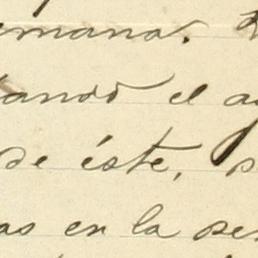 emana.
tando el ag
de éste, s
as en la ser